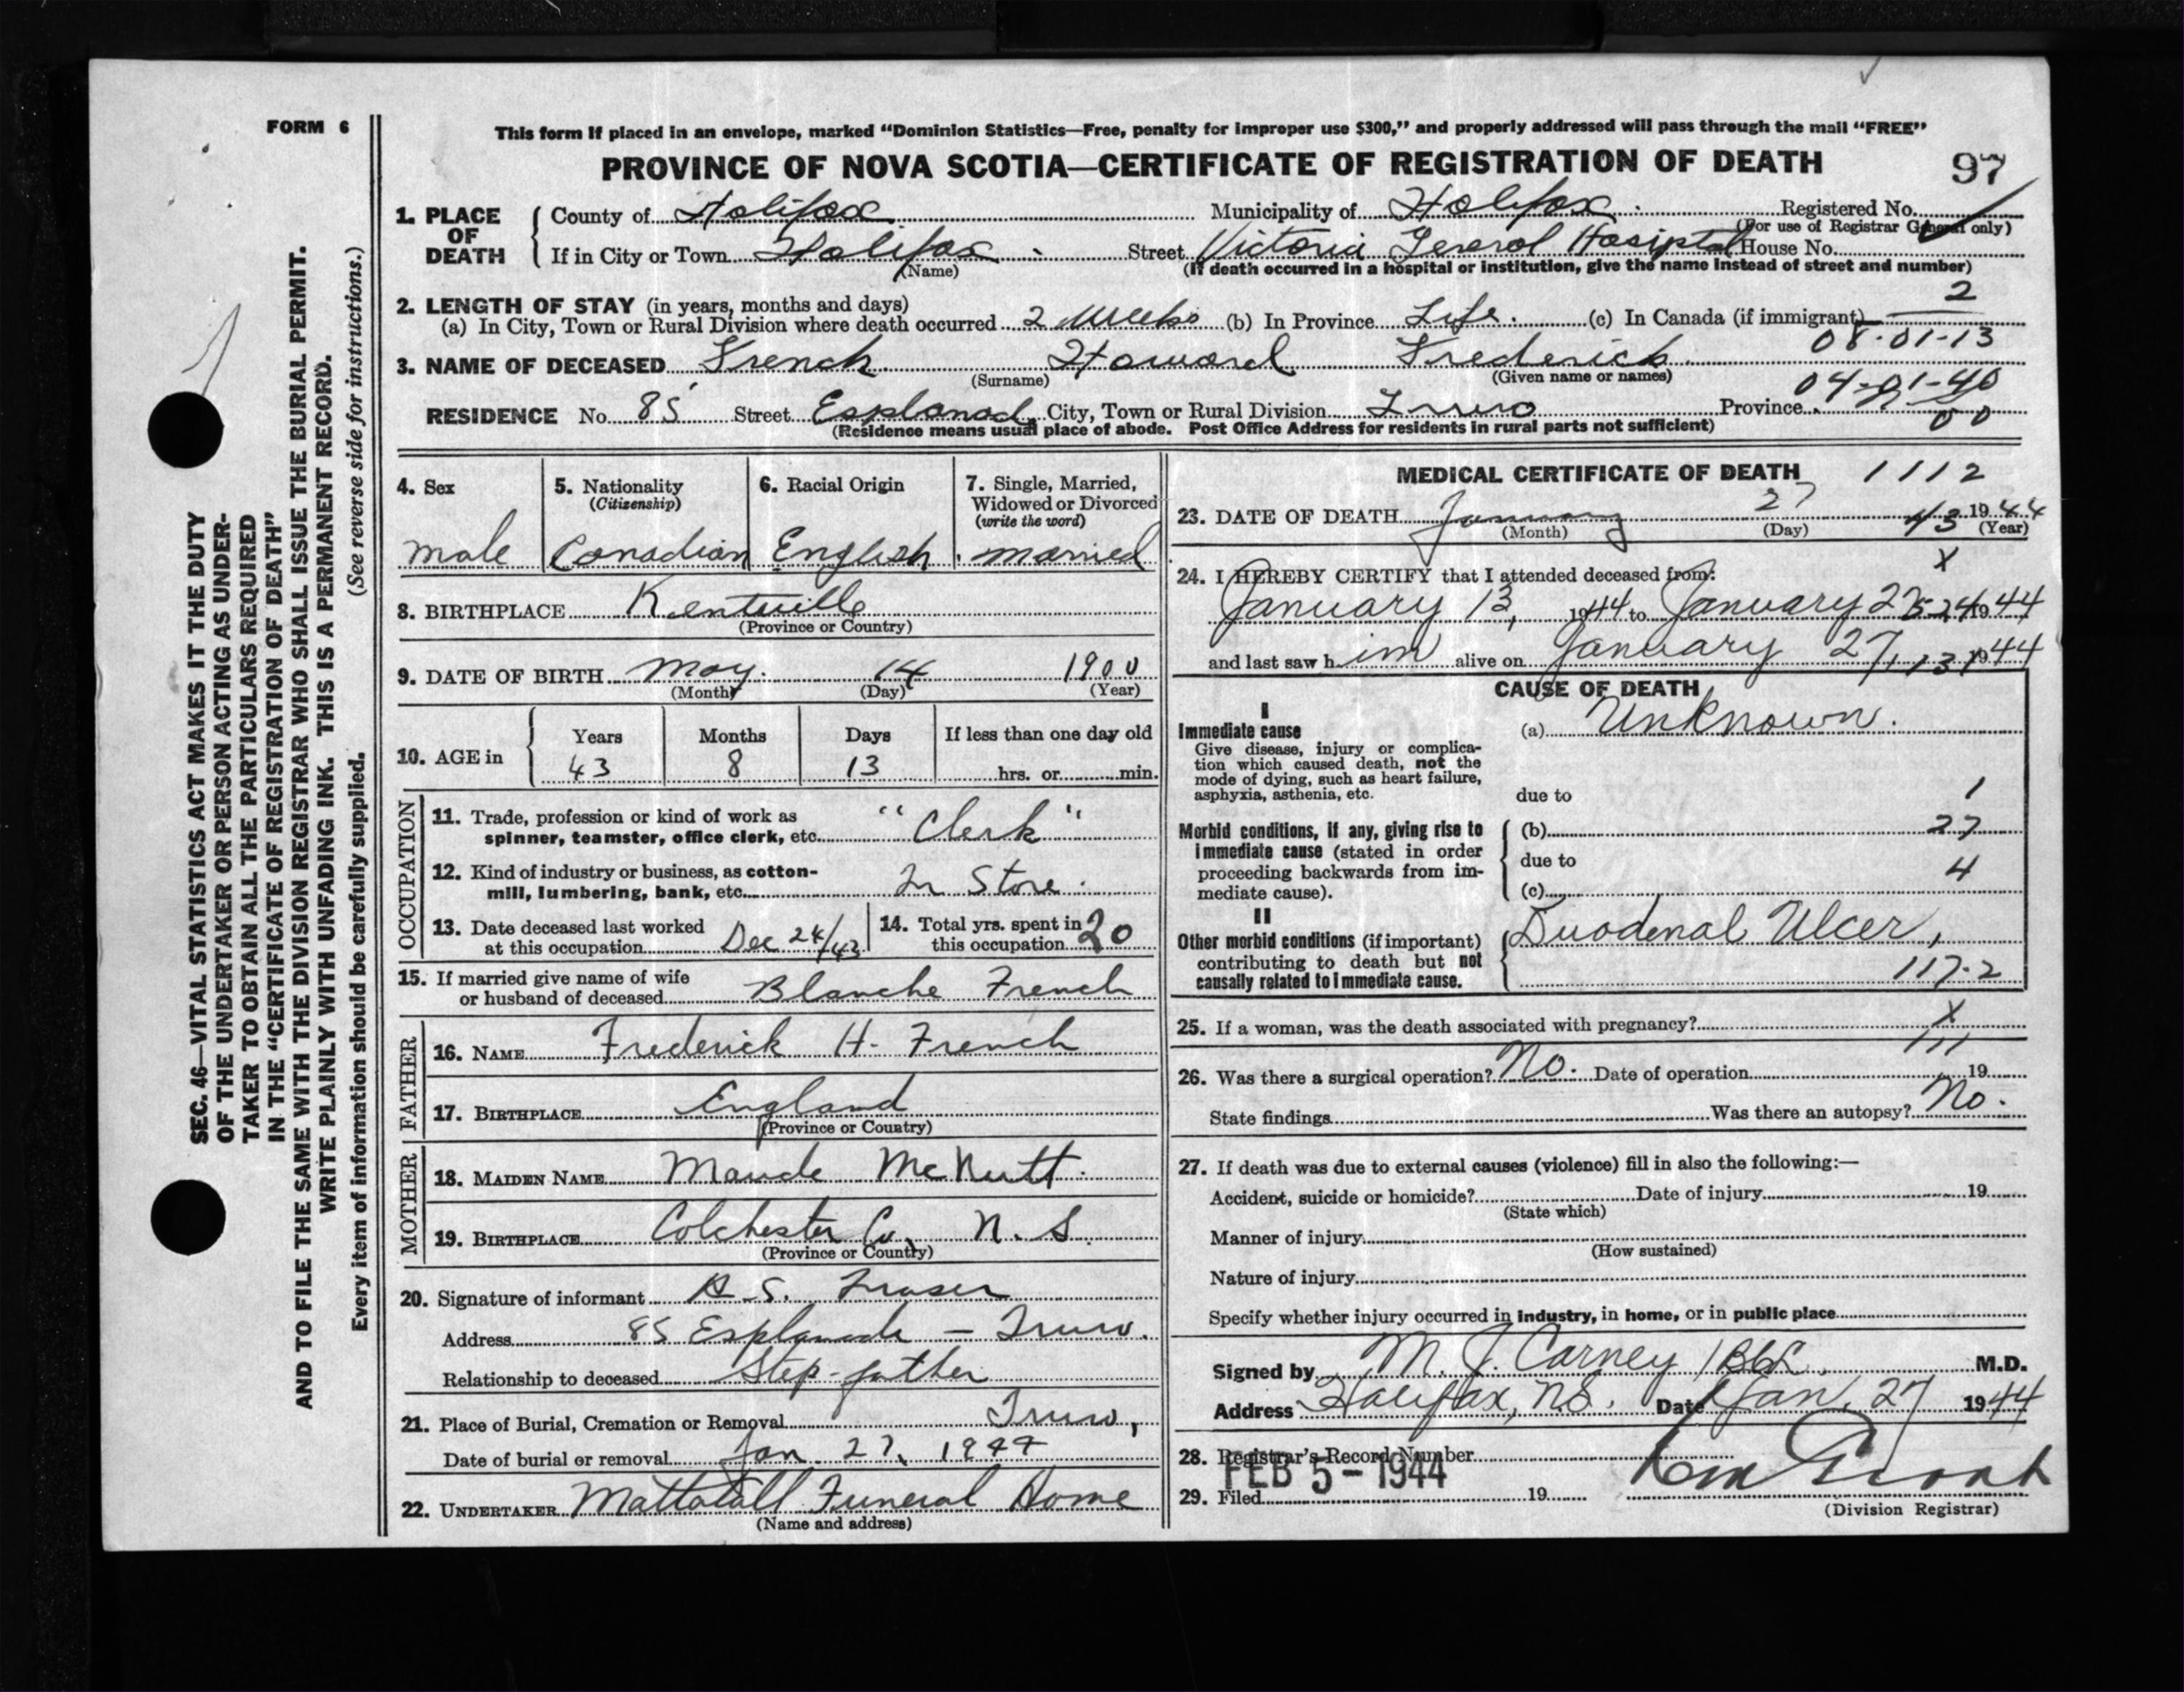 FORM 6
This form if placed in an envelope, marked “Dominion Statistics—Free, penalty for improper use $300,” and properly addressed will pass through the mail “FREE”
PROVINCE OF NOVA SCOTIA—CERTIFICATE OF REGISTRATION OF DEATH
97
1. PLACE OF DEATH
County of Halifax Municipality of Halifax Registered No.
(For use of Registrar General only)
If in City or Town Halifax Street Victoria General Hosiptal House No.
(Name) (If death occurred in a hospital or institution, give the name instead of street and number)
2. LENGTH OF STAY (in years, months and days) 2
(a) In City, Town or Rural Division where death occurred 2 weeks (b) In Province Life. (c) In Canada (if immigrant)
08-01-13
3. NAME OF DECEASED French Howard Frederick
(Surname) (Given name or names)
04-01-40
RESIDENCE No. 85 Street Esplanad City, Town or Rural Division Truro Province
00
(Residence means usual place of abode. Post Office Address for residents in rural parts not sufficient)
4. Sex
male
5. Nationality
(Citizenship)
Canadian
6. Racial Origin
English.
7. Single, Married, Widowed or Divorced
(write the word)
married
8. BIRTHPLACE Kentville
(Province or Country)
9. DATE OF BIRTH May. 14 1900
(Month) (Day) (Year)
10. AGE in
Years Months Days If less than one day old
43 8 13 hrs. or min.
OCCUPATION
11. Trade, profession or kind of work as
spinner, teamster, office clerk, etc. "Clerk"
12. Kind of industry or business, as cotton-
mill, lumbering, bank, etc. In Store.
13. Date deceased last worked
at this occupation Dec 24/43
14. Total yrs. spent in
this occupation 20
15. If married give name of wife
or husband of deceased Blanche French
FATHER
16. NAME Frederick H. French
17. BIRTHPLACE England
(Province or Country)
MOTHER
18. MAIDEN NAME Maude McNutt.
19. BIRTHPLACE Colchester Co, N.S.
(Province or Country)
20. Signature of informant S. Fraser
Address 85 Esplanade — Truro.
Relationship to deceased Step-father
21. Place of Burial, Cremation or Removal Truro,
Date of burial or removal Jan. 27, 1944
22. UNDERTAKER Mattatall Funeral Home
(Name and address)
MEDICAL CERTIFICATE OF DEATH 1112
23. DATE OF DEATH January 27 1944
(Month) (Day) (Year)
43
X
24. I HEREBY CERTIFY that I attended deceased from:
January 13, 1944 to January 1944
and last saw h im alive on January 27, 1944
CAUSE OF DEATH
I
Immediate cause
Give disease, injury or complica-
tion which caused death, not the
mode of dying, such as heart failure,
asphyxia, asthenia, etc.
(a) Unknown.
due to 1
Morbid conditions, if any, giving rise to
immediate cause (stated in order
proceeding backwards from im-
mediate cause).
(b) 27
due to 4
(c)
II
Other morbid conditions (if important)
contributing to death but not
causally related to immediate cause.
Duodenal Ulcer,
117.2
25. If a woman, was the death associated with pregnancy? X
111
26. Was there a surgical operation? No. Date of operation 19
State findings Was there an autopsy? No.
27. If death was due to external causes (violence) fill in also the following:—
Accident, suicide or homicide? Date of injury 19
(State which)
Manner of injury
(How sustained)
Nature of injury
Specify whether injury occurred in industry, in home, or in public place
Signed by M. J. Carney M.D.
Address Halifax, N.S. Date Jan. 27 1944
28. Registrar's Record Number
FEB 5 - 1944
29. Filed 19
(Division Registrar)
SEC. 46—VITAL STATISTICS ACT MAKES IT THE DUTY
OF THE UNDERTAKER OR PERSON ACTING AS UNDER-
TAKER TO OBTAIN ALL THE PARTICULARS REQUIRED
IN THE “CERTIFICATE OF REGISTRATION OF DEATH”
AND TO FILE THE SAME WITH THE DIVISION REGISTRAR WHO SHALL ISSUE THE BURIAL PERMIT.
WRITE PLAINLY WITH UNFADING INK. THIS IS A PERMANENT RECORD.
Every item of information should be carefully supplied. (See reverse side for instructions.)